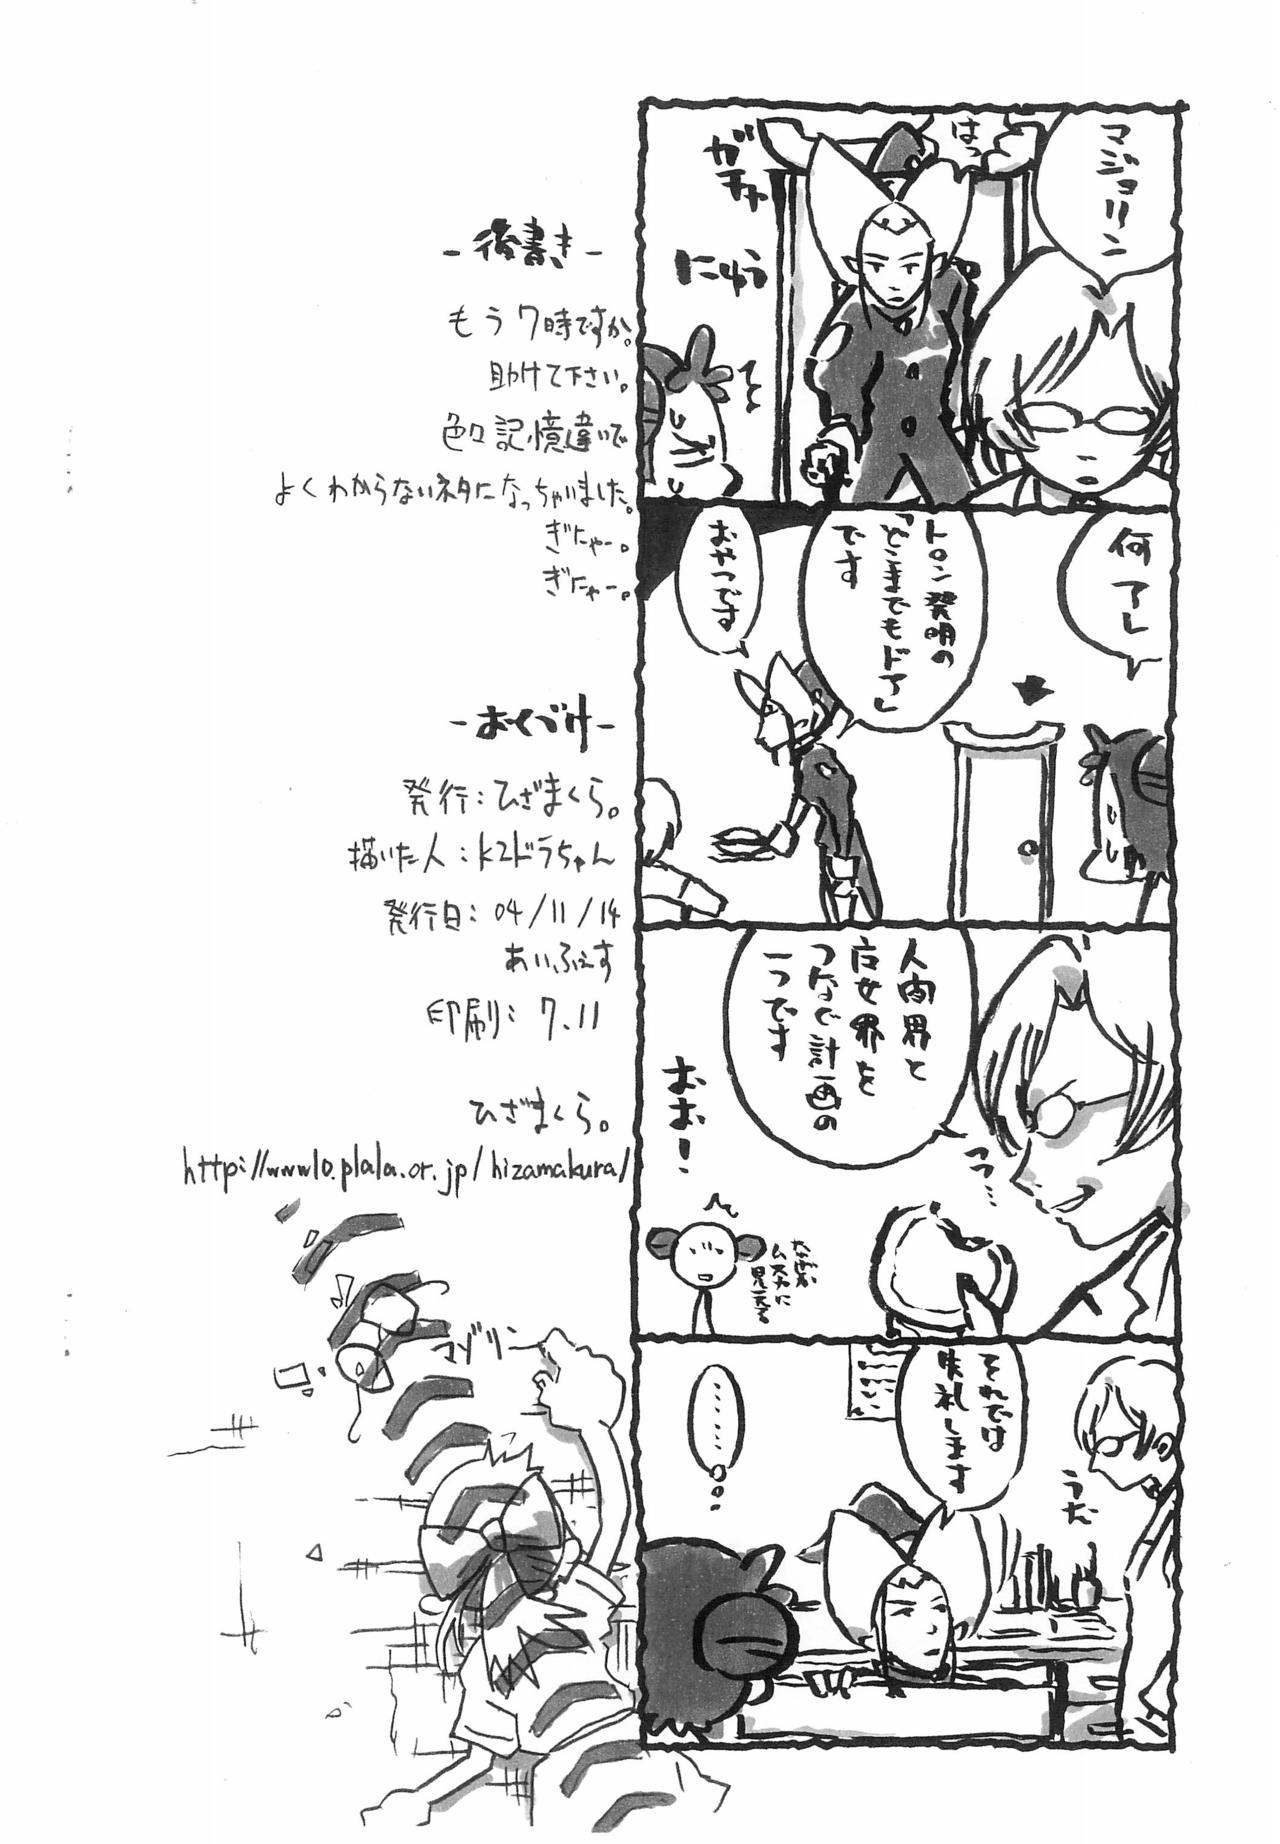 マジョリン
はっ
ガチャ
にゅう
何アレ
トロン発明の
「どこまでもドア」
です
おやつです
人間界と
魔女界を
つなぐ計画の
一つです
フフ…
おお！
なぜか
ムスカに
見える
それでは
失礼します
………
うむ
-後書き-
もう7時ですか。
助けて下さい。
色々記憶違いで
よくわからないネタになっちゃいました。
ぎにゃー。
ぎにゃー。
-おくづけ-
発行：ひざまくら。
描いた人：K2ドラちゃん
発行日：04/11/14
あいふぇす
印刷：7.11
ひざまくら。
http://www10.plala.or.jp/hizamakura/
マゾリン